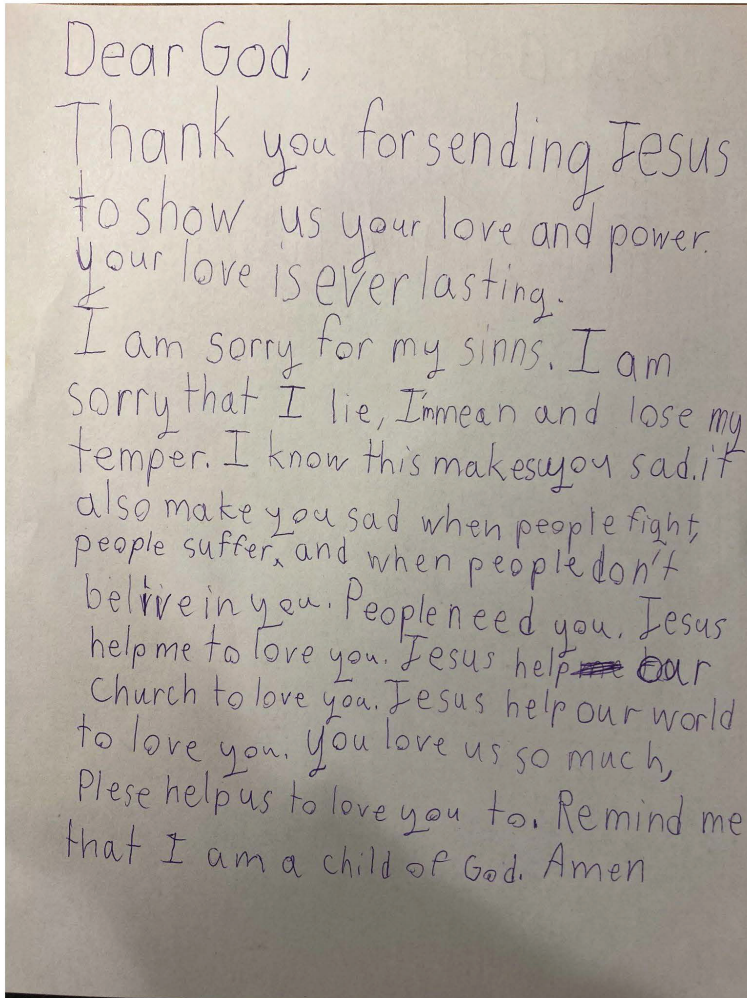 Dear God,
Thank you for sending Jesus
to show us your love and power.
your love is everlasting.
I am sorry for my sinns. I am
sorry that I lie, I'm mean and lose my
temper. I know this makes you sad. it
also make you sad when people fight,
people suffer, and when people don't
belive in you. People need you. Jesus
help me to love you. Jesus help me our
Church to love you. Jesus help our world
to love you. You love us so much,
Plese help us to love you to. Remind me
that I am a child of God. Amen